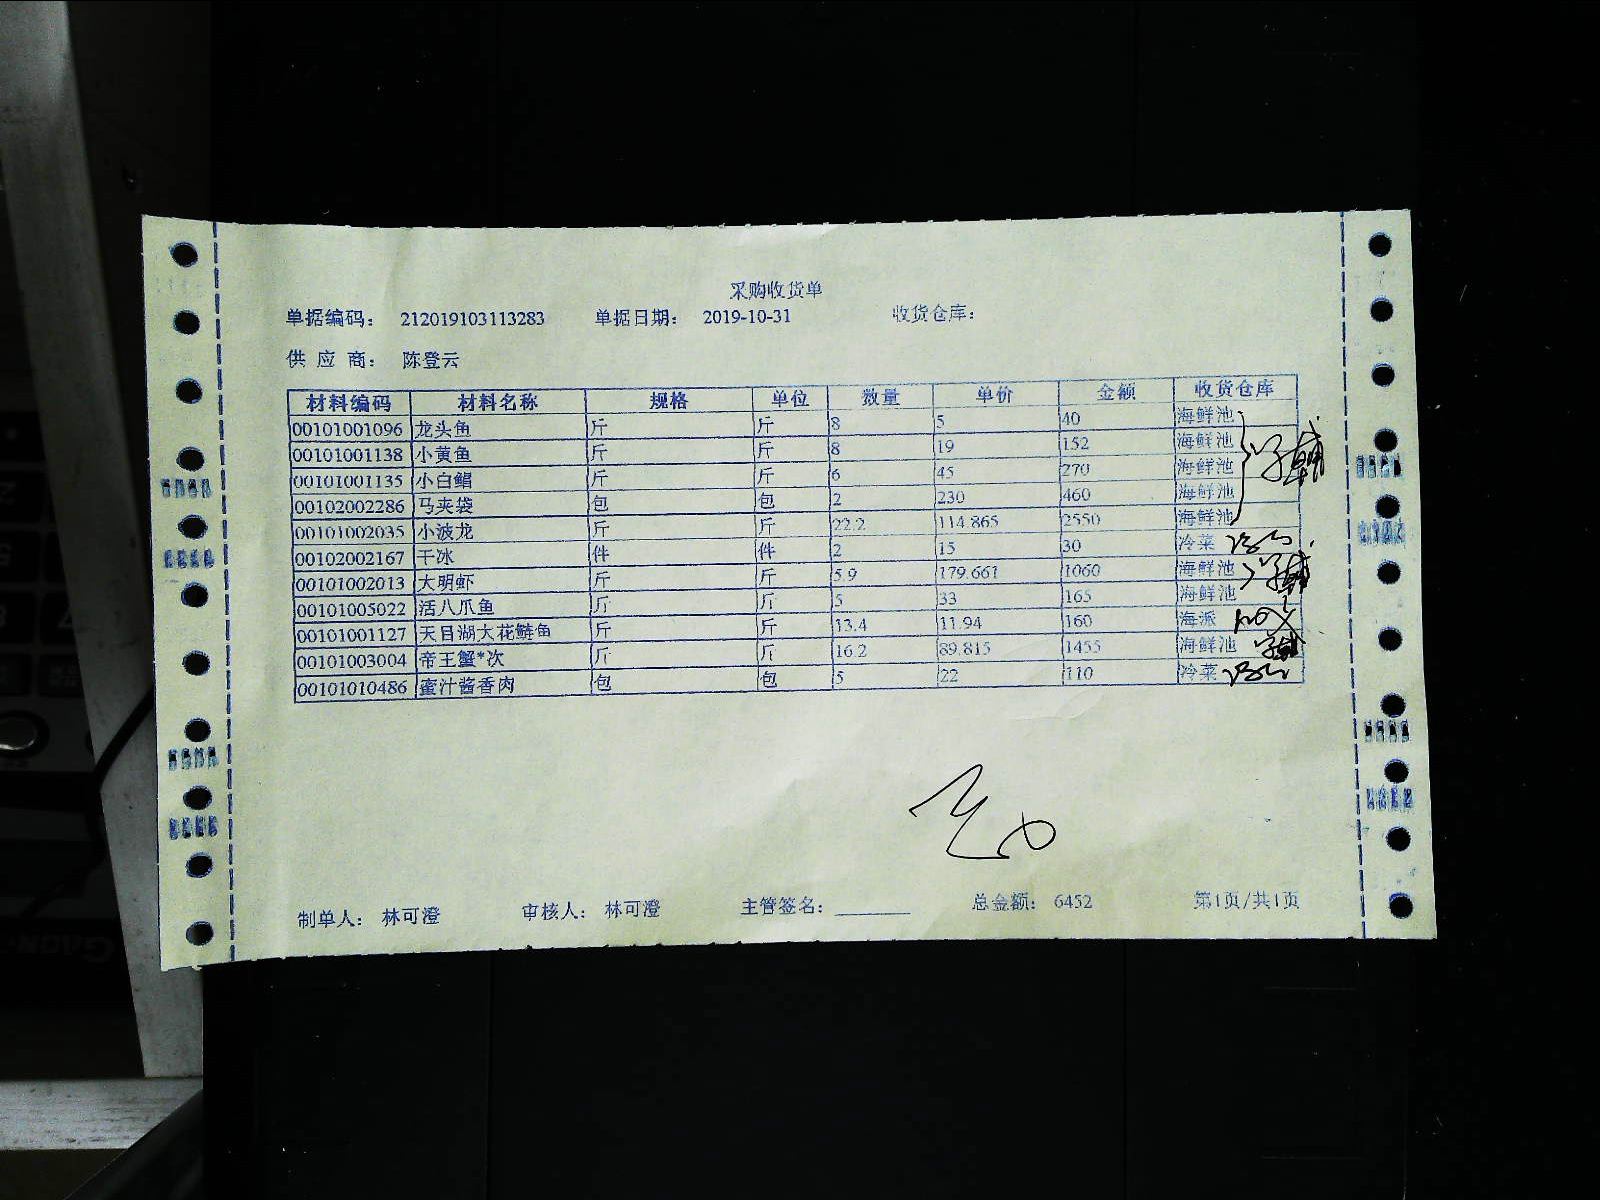 采购收货单
单据编码： 212019103113283 单据日期： 2019-10-31 收货仓库：
供 应 商： 陈登云
材料编码 材料名称 规格 单位 数量 单价 金额 收货仓库
00101001096 龙头鱼 斤 斤 8 5 40 海鲜池
00101001138 小黄鱼 斤 斤 8 19 152 海鲜池
00101001135 小白鲳 斤 斤 6 45 270 海鲜池
00102002286 马夹袋 包 包 2 230 460 海鲜池
00101002035 小波龙 斤 斤 22.2 114.865 2550 海鲜池
00102002167 干冰 件 件 2 15 30 冷菜
00101002013 大明虾 斤 斤 5.9 179.661 1060 海鲜池
00101005022 活八爪鱼 斤 斤 5 33 165 海鲜池
00101001127 天目湖大花鲢鱼 斤 斤 13.4 11.94 160 海派
00101003004 帝王蟹*次 斤 斤 16.2 89.815 1455 海鲜池
00101010486 蜜汁酱香肉 包 包 5 22 110 冷菜
制单人： 林可澄 审核人： 林可澄 主管签名： 总金额： 6452 第1页/共1页